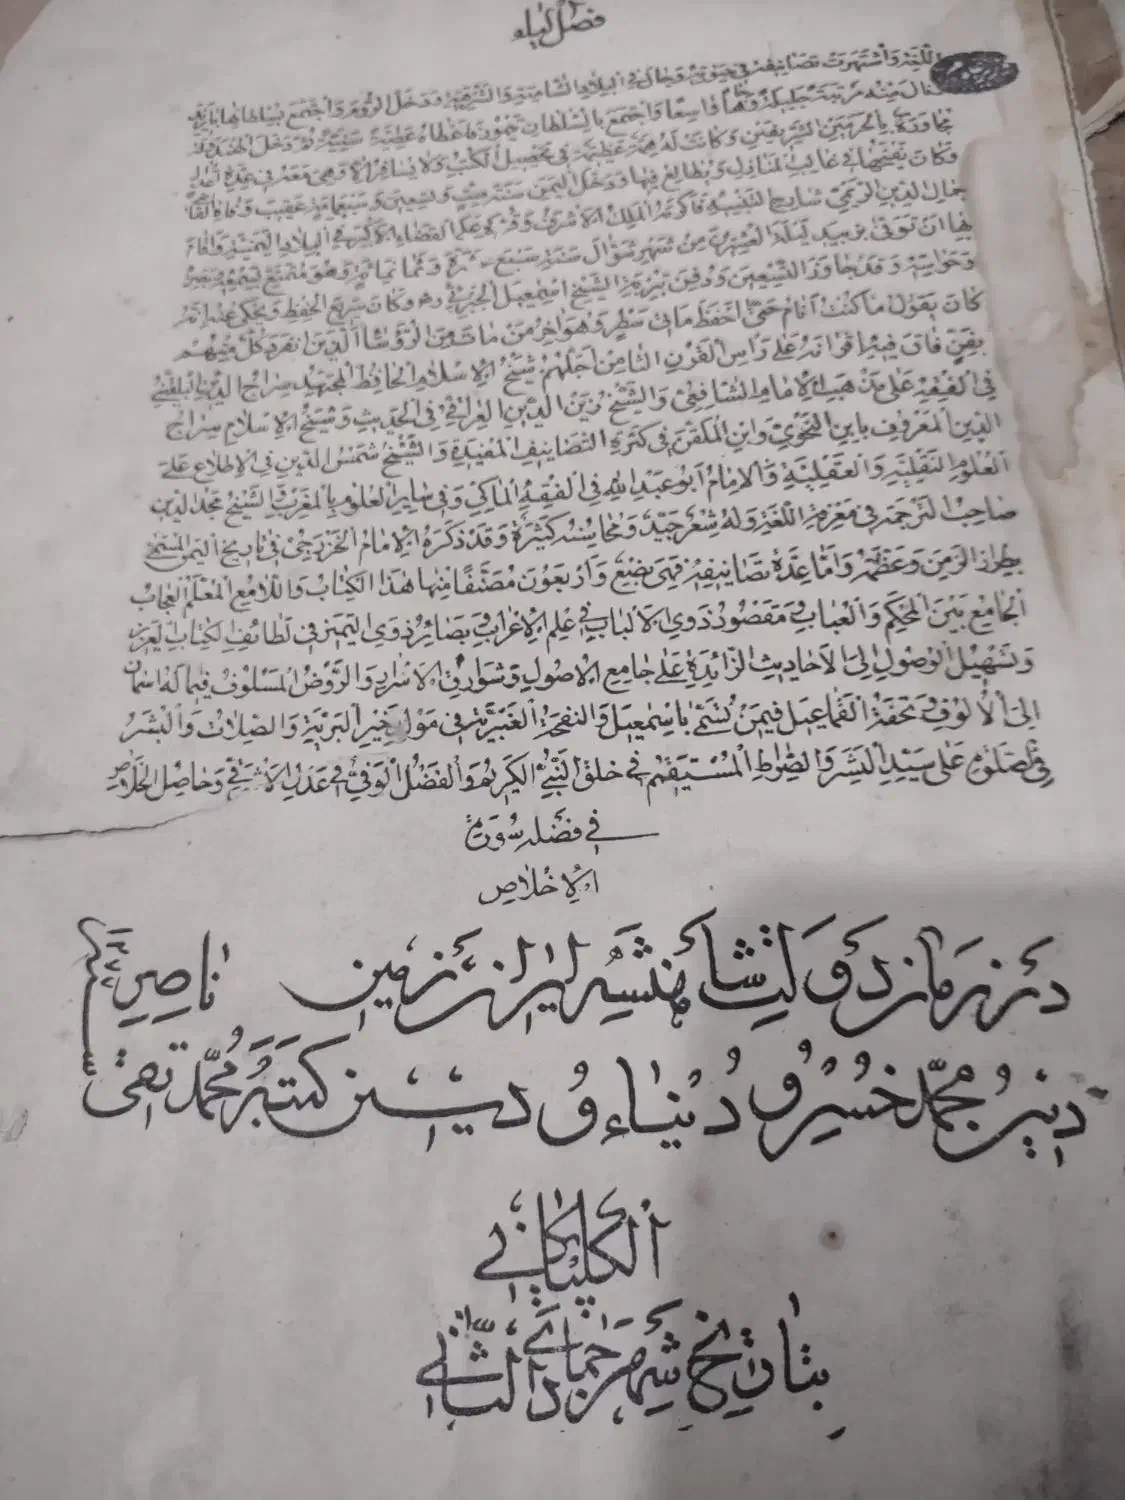 فصل الياء
اللغة واشتهرت تصانيفه في حيوته وجال في البلاد الشامية والشرقية ودخل الروم واجتمع بسلطانها بايزيد
نال منه مرتبة جليلة وجاها واسعا واجتمع بالسلطان تيمور فاعطاه عطية سنية ثم دخل الهند
مجاورة بالحرمين الشريفين وكانت له همة عظيمة في تحصيل الكتب ولا يسافر الا وهي معه في عدة احمال
وكان يفتحها في غالب المنازل ويطالع فيها ودخل اليمن سنة ست وتسعين وسبعمائة عقيب وفاة القاضي
جمال الدين الريمي شارح التنبيه فاكرمه الملك الاشرف وقرره على القضاء الاكبر في البلاد اليمنية واقام
بها ان توفي بزبيد ليلة العشرين من شهر شوال سنة سبع عشرة وثمانمائة وهو ممتع بسمعه وبصره
وحواسه وقد جاوز التسعين ودفن بتربة الشيخ اسمعيل الجبرتي وكان سريع الحفظ ويحكى عنه انه
كان يقول ما كنت انام حتى احفظ مائتي سطر وهو اخر من مات من الرؤساء الذين انفرد كل منهم
بفن فاق فيه اقرانه على راس القرن الثامن اجلهم شيخ الاسلام الحافظ المجتهد سراج الدين البلقيني
في الفقه على مذهب الامام الشافعي والشيخ زين الدين العراقي في الحديث وشيخ الاسلام سراج
الدين المعروف بابن النحوي وابن الملقن في كثرة التصانيف المفيدة والشيخ شمس الدين في الاطلاع على
العلوم النقلية والعقلية والامام ابو عبد الله في الفقه المالكي وفي ساير العلوم بالمغرب الشيخ مجد الدين
صاحب الترجمة في معرفة اللغة وله شعر جيد ومحاسنه كثيرة وقد ذكره الامام الخزرجي في تاريخ اليمن المسمى
بطراز الزمن وعظمه واما عدة تصانيفه فهي بضع واربعون مصنفا منها هذا الكتاب واللامع المعلم العجاب
الجامع بين المحكم والعباب ومقصود ذوي الالباب في علم الاعراب وبصائر ذوي التمييز في لطائف الكتاب العزيز
وتسهيل الوصول الى الاحاديث الزائدة على جامع الاصول وشوارق الاسرار والروض المسلوف فيما له اسمان
الى الألوف وتحفة القماعيل فيمن تسمى باسمعيل والنفحة العنبرية في مولد خير البرية والصلات والبشر
في الصلوة على سيد البشر والصراط المستقيم في خلق النبي الكريم والفضل الوفي في عدل الاشرفي وحاصل الخلاص
في فضل سورة
الاخلاص
در زمان دولت شاهنشه ايران زمين ناصر
دين محمد خسرو دنيا و دين كتبه محمد تقي
الكلپايكاني
بتاريخ شهر جمادي الثاني